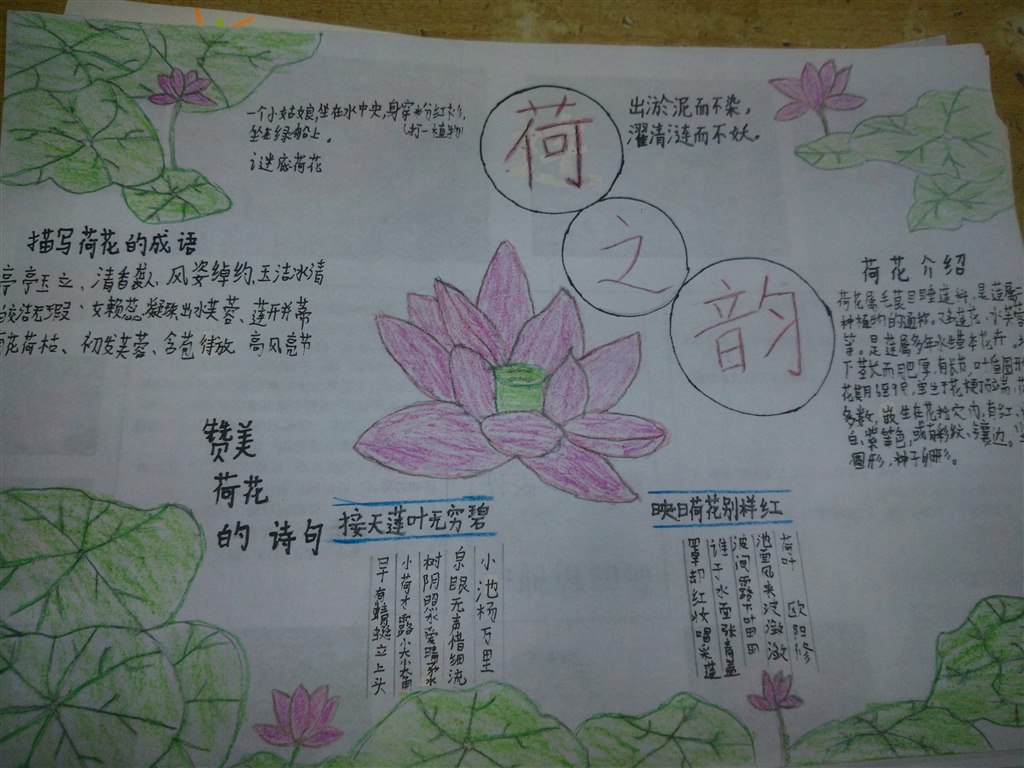 荷之韵
一个小姑娘,坐在水中央,身穿粉红衫,
坐在绿船上。(打一植物)
谜底荷花
出淤泥而不染,
濯清涟而不妖。
描写荷花的成语
亭亭玉立、清香 、风姿绰约、玉洁冰清
皎洁无瑕、女颗蕊、凝珠出水芙蓉、莲开并蒂
花荷枯、初发芙蓉、含苞待放 高风亮节
荷花介绍
荷花属毛茛目睡莲科,是莲属
种植物的通称。又名莲花、水芙蓉
等。是莲属多年水生草本花卉。
下茎长而肥厚,有长节,叶盾圆形
花期6至9月,单生于花梗顶端,
多数,嵌生在花托穴内,有红、
白、紫等色,或有彩纹、镶边。
圆形,种子卵形。
赞美
荷花
的诗句
接天莲叶无穷碧
映日荷花别样红
小池杨万里
泉眼无声惜细流
树阴照水爱晴柔
小荷才露尖尖角
早有蜻蜓立上头
荷叶 欧阳修
池面风来波潋潋
波间露下叶田田
谁于水面张青盖
罩却红妆唱采莲